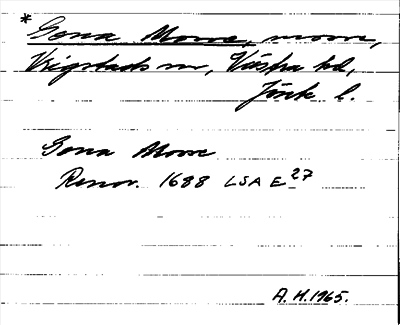 * Gona Mosse, mosse,
Vrigstads sn, Västra hd,
Jönk l.
Gona Mosse
Renov. 1688 LSA E 27
A.H. 1965.